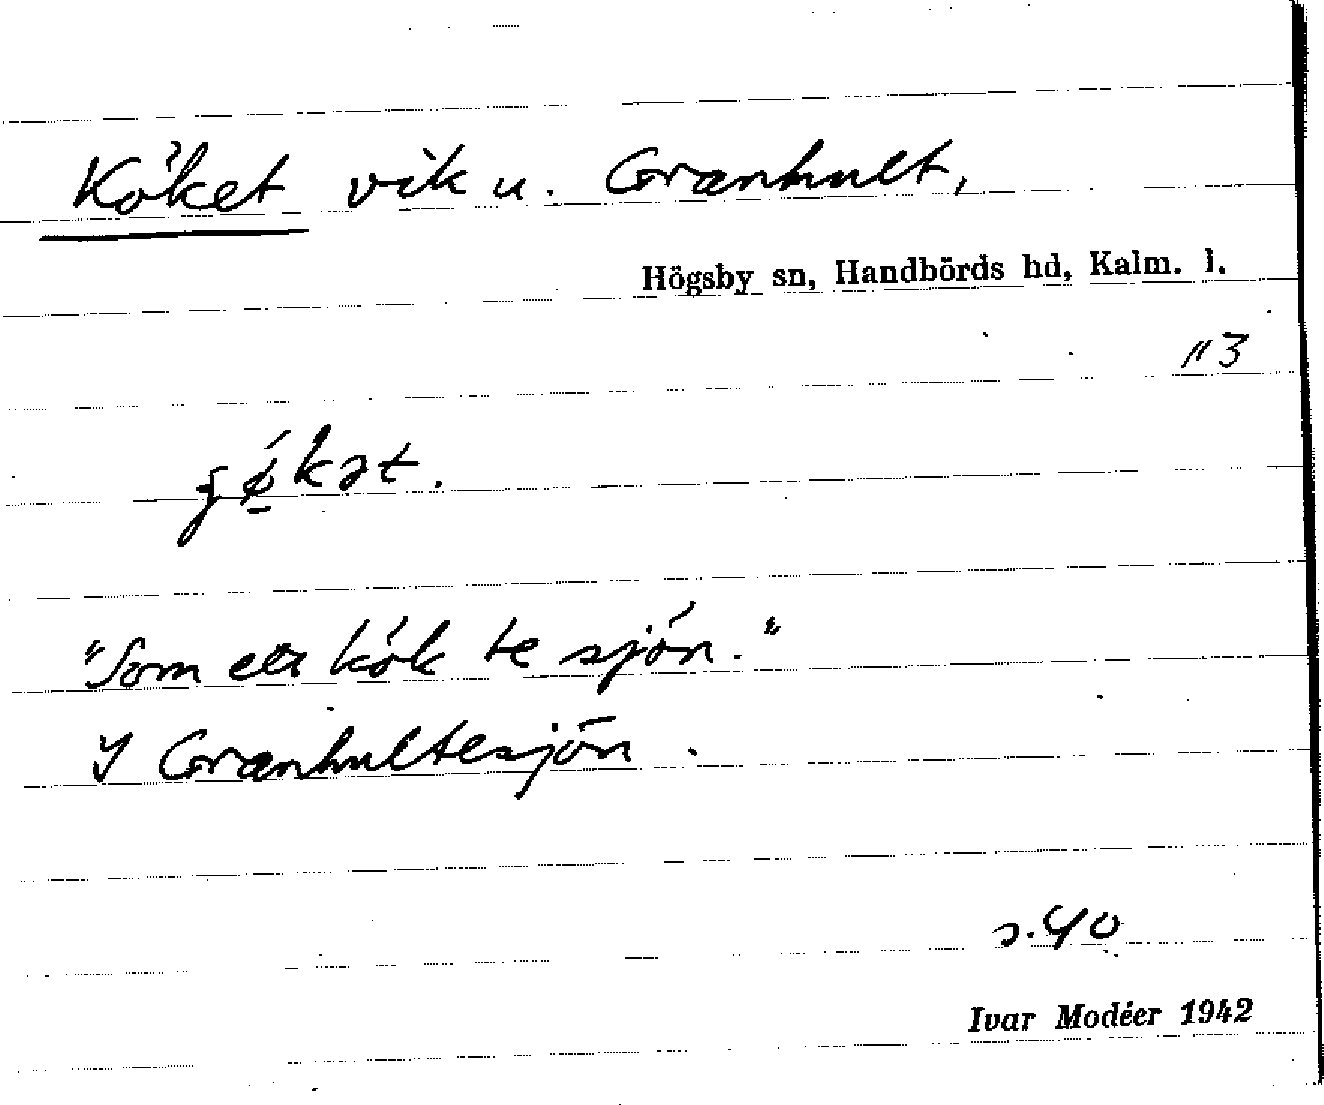 Köket vik u. Granhult,
Högsby sn, Handbörds hd, Kalm. l.
113
"Som ett kök te sjön."
I Granhultesjön.
s. 40
Ivar Modéer 1942